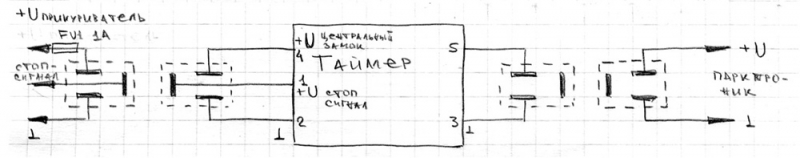 +U ПРИКУРИВАТЕЛЬ
FU1 1А
СТОП-
СИГНАЛ
⊥
+U ЦЕНТРАЛЬНЫЙ
ЗАМОК
4
ТАЙМЕР
1
+U СТОП
СИГНАЛ
2
⊥
5
3
⊥
+U
ПАРКТРО-
НИК
⊥